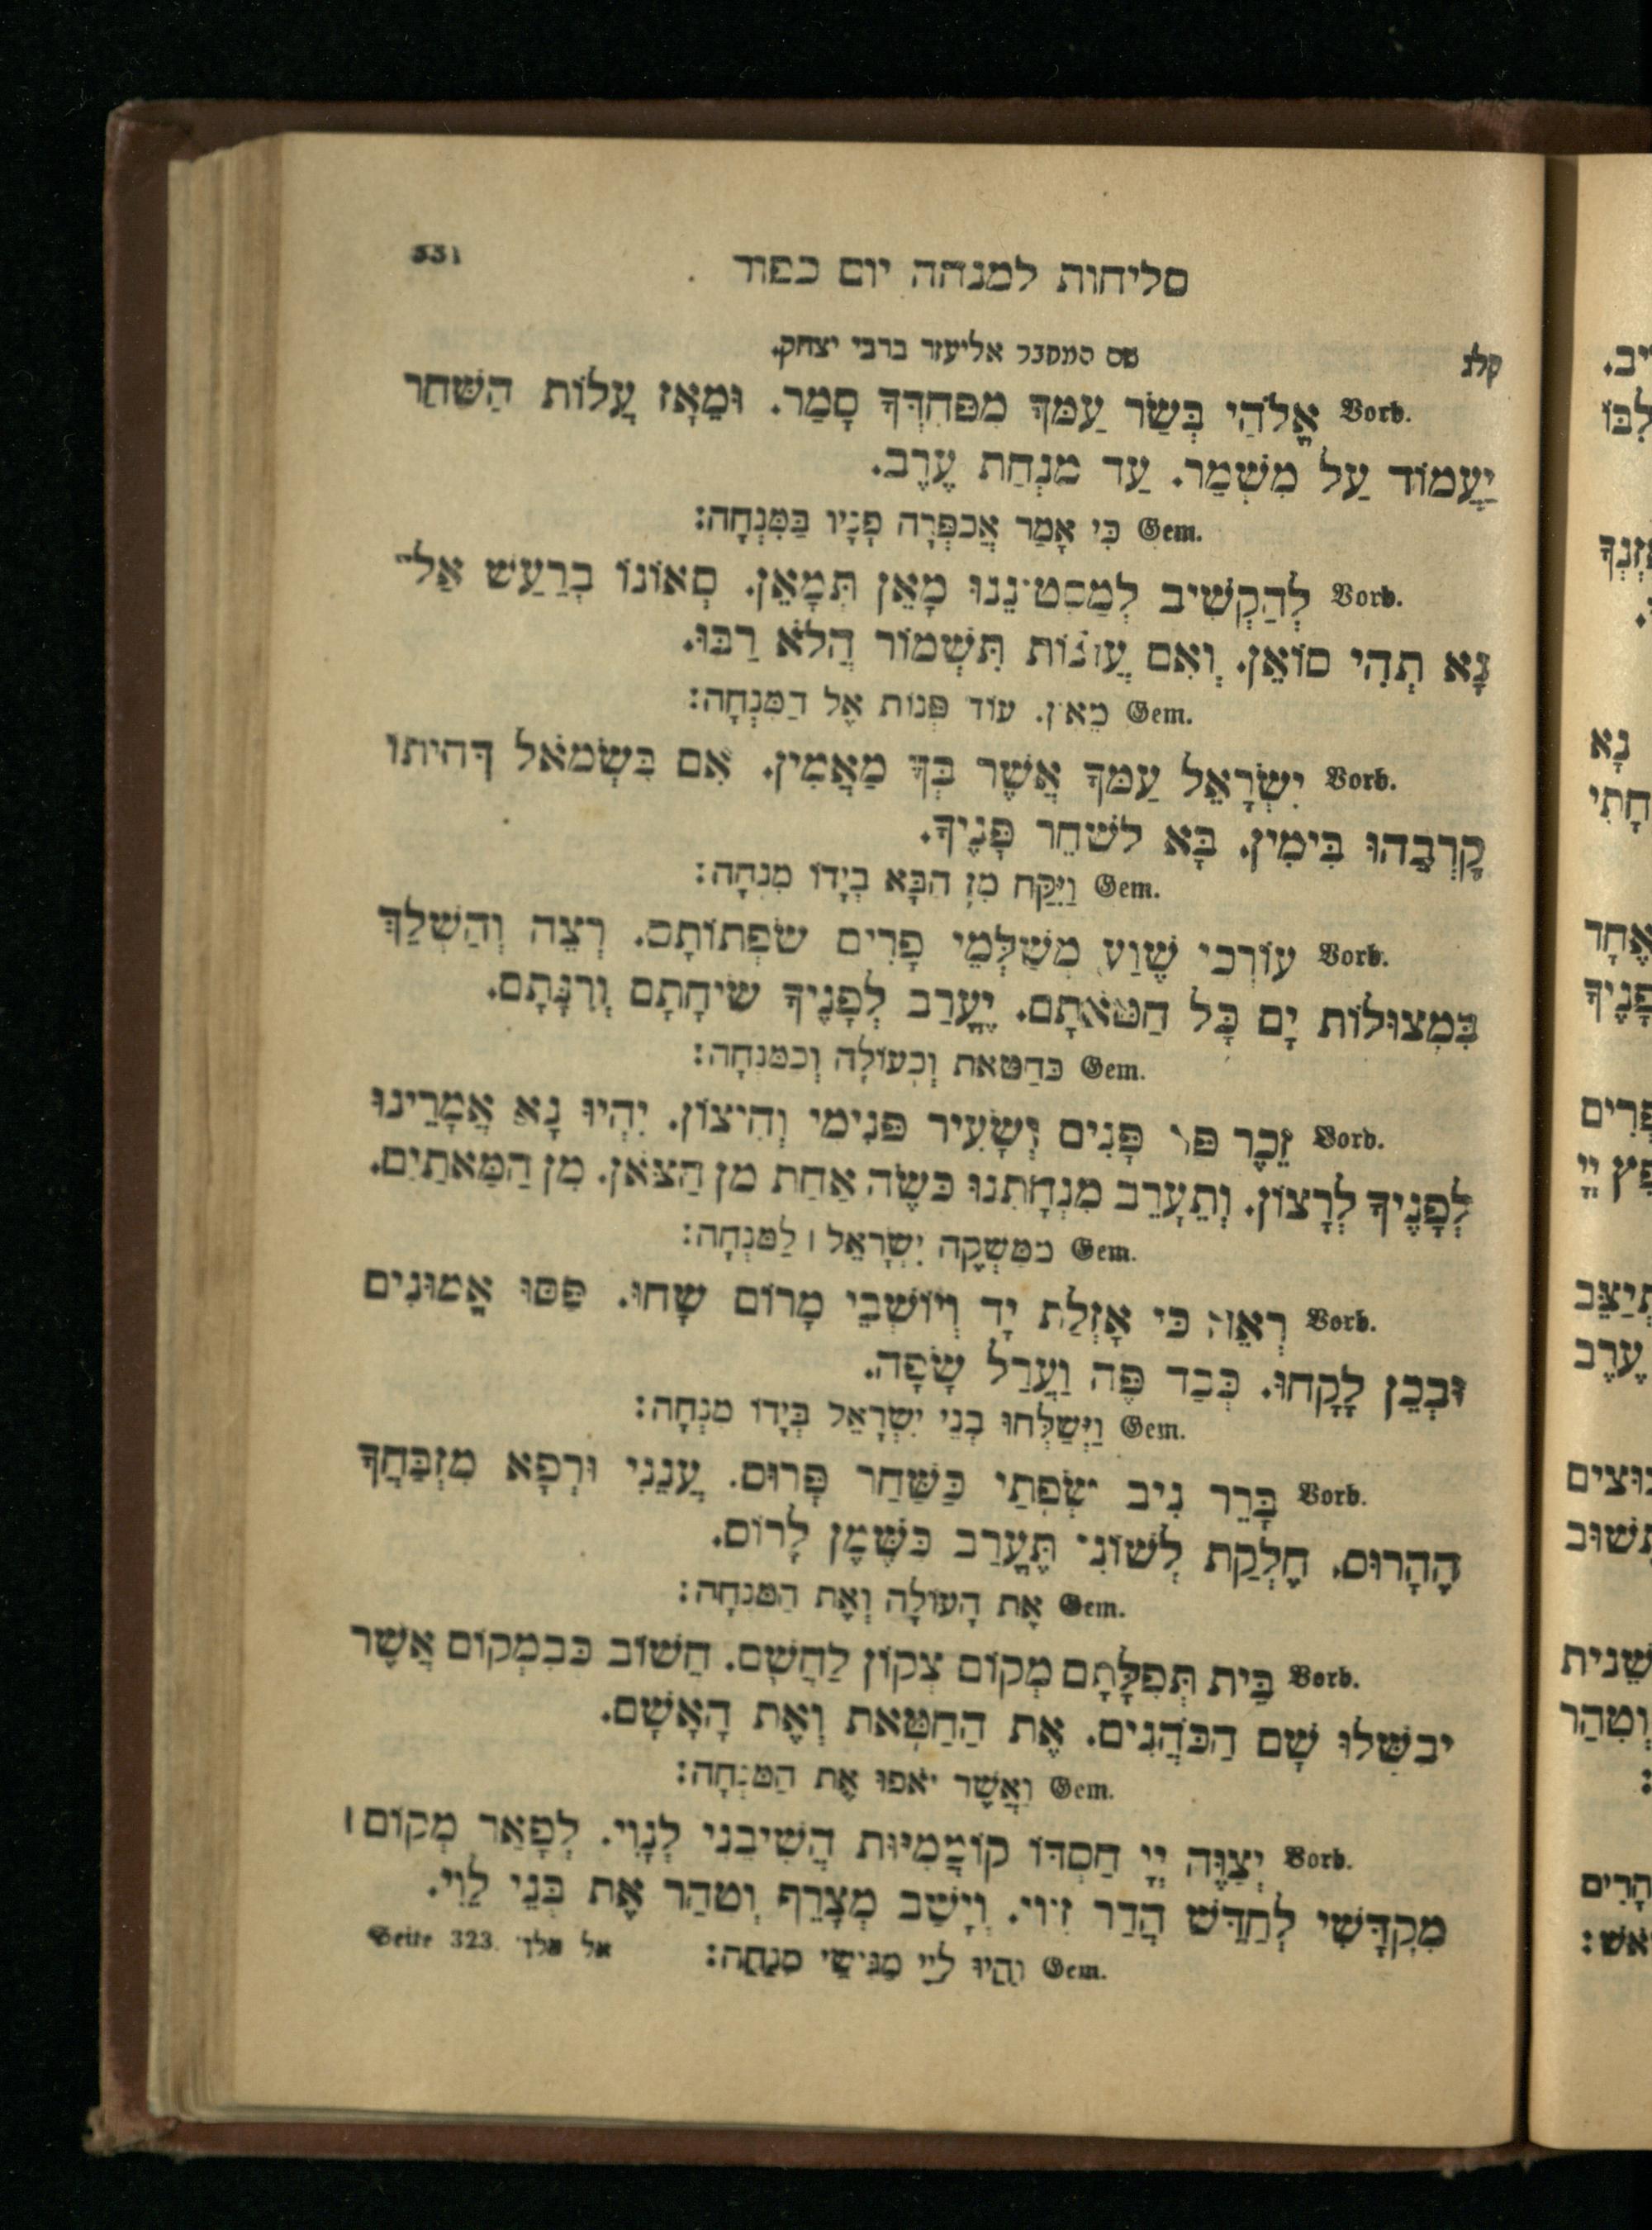 סליחות למנחה יום כפור 331
קלג שם המחבר אליעזר ברבי יצחק.
Vorb. אֱלֹהַי בְּשַׂר עַמְּךָ מִפַּחְדְּךָ סָמַר. וּמֵאָז עֲלוֹת הַשַּׁחַר
יַעֲמוֹד עַל מִשְׁמָר. עַד מִנְחַת עֶרֶב.
Gem. כִּי אָמַר אֲכַפְּרָה פָנָיו בַּמִּנְחָה:
Vorb. לְהַקְשִׁיב לְמַסְטִינֵנוּ מָאֵן תְּמָאֵן. סְאוֹנוֹ בְרַעַשׁ אַל־
נָא תְהִי סוֹאֵן. וְאִם עֲוֹנוֹת תִּשְׁמוֹר הֲלֹא רַבּוּ.
Gem. מֵאֵין עוֹד פְּנוֹת אֶל הַמִּנְחָה:
Vorb. יִשְׂרָאֵל עַמְּךָ אֲשֶׁר בְּךָ מַאֲמִין. אִם בִּשְׂמֹאל דְּחִיתוֹ
קָרְבֵהוּ בִּימִין. בָּא לְשַׁחֵר פָּנֶיךָ.
Gem. וַיִּקַּח מִן הַבָּא בְיָדוֹ מִנְחָה:
Vorb. עוֹרְכֵי שֶׁוַע מְשַׁלְּמֵי פָרִים שִׂפְתוֹתָם. רְצֵה וְהַשְׁלֵךְ
בִּמְצוּלוֹת יָם כָּל חַטֹּאתָם. יֶעֱרַב לְפָנֶיךָ שִׂיחָתָם וְרִנָּתָם.
Gem. כַּחַטָּאת וְכָעוֹלָה וְכַמִּנְחָה:
Vorb. זֵכֶר פַּר פָּנִים וְשָׂעִיר פְּנִימִי וְחִיצוֹן. יִהְיוּ נָא אֲמָרֵינוּ
לְפָנֶיךָ לְרָצוֹן. וְתֵעָרֵב מִנְחָתֵנוּ כְּשֶׂה אַחַת מִן הַצֹּאן. מִן הַמָּאתַיִם.
Gem. מִמַּשְׁקֵה יִשְׂרָאֵל לַמִּנְחָה:
Vorb. רְאֵה כִּי אָזְלַת יָד וְיוֹשְׁבֵי מָרוֹם שָׁחוּ. פַּסּוּ אֱמוּנִים
וּבְכֵן לָקָחוּ. כְּבַד פֶּה וַעֲרַל שָׂפָה.
Gem. וַיִּשְׁלְחוּ בְנֵי יִשְׂרָאֵל בְּיָדוֹ מִנְחָה:
Vorb. בָּרֵר נִיב שְׂפָתַי כַּשַּׁחַר פָּרוּס. עֲנֵנִי וּרְפָא מִזְבַּחֲךָ
הֶהָרוּס. חֶלְקַת לְשׁוֹנִי תֶּעֱרַב כְּשֶׁמֶן לָרוֹס.
Gem. אֶת הָעוֹלָה וְאֶת הַמִּנְחָה:
Vorb. בֵּית תְּפִלָּתָם מְקוֹם צְקוֹן לַחֲשָׁם. חֲשׁוֹב כְּבִמְקוֹם אֲשֶׁר
יְבַשְּׁלוּ שָׁם הַכֹּהֲנִים. אֶת הַחַטָּאת וְאֶת הָאָשָׁם.
Gem. וַאֲשֶׁר יֹאפוּ אֶת הַמִּנְחָה:
Vorb. יְצַוֶּה יְיָ חַסְדּוֹ קוֹמֲמִיּוּת הֲשִׁיבֵנִי לְנָוִי. לְפָאֵר מְקוֹם
מִקְדָּשִׁי לְחַדֵּשׁ הֲדַר זִיוִי. וְיָשַׁב מְצָרֵף וְטִהַר אֶת בְּנֵי לֵוִי.
Gem. וְהָיוּ לַיְיָ מַגִּישֵׁי מִנְחָה: אל מלך Seite 323.